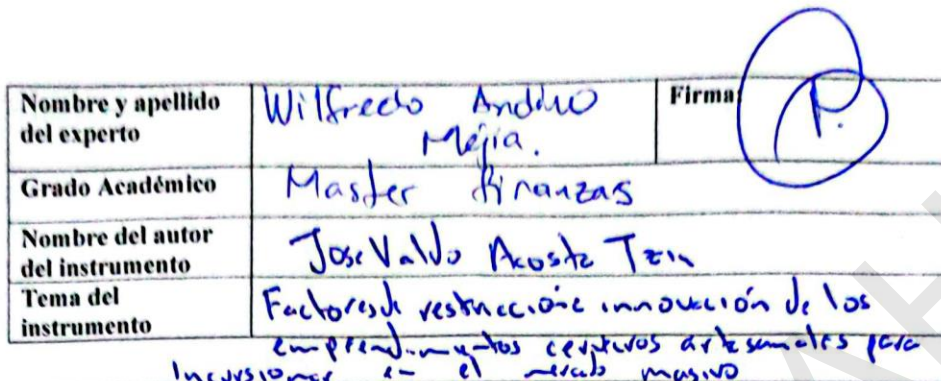 Nombre y apellido Wilfredo Andino Firma:
del experto Mejía. P.
Grado Académico Master finanzas
Nombre del autor
del instrumento Jose Valdo Acosta Tzin
Tema del Factores de restricción e innovación de los
instrumento
emprendimientos cerveceros artesanales para
Incursionar en el mercado masivo